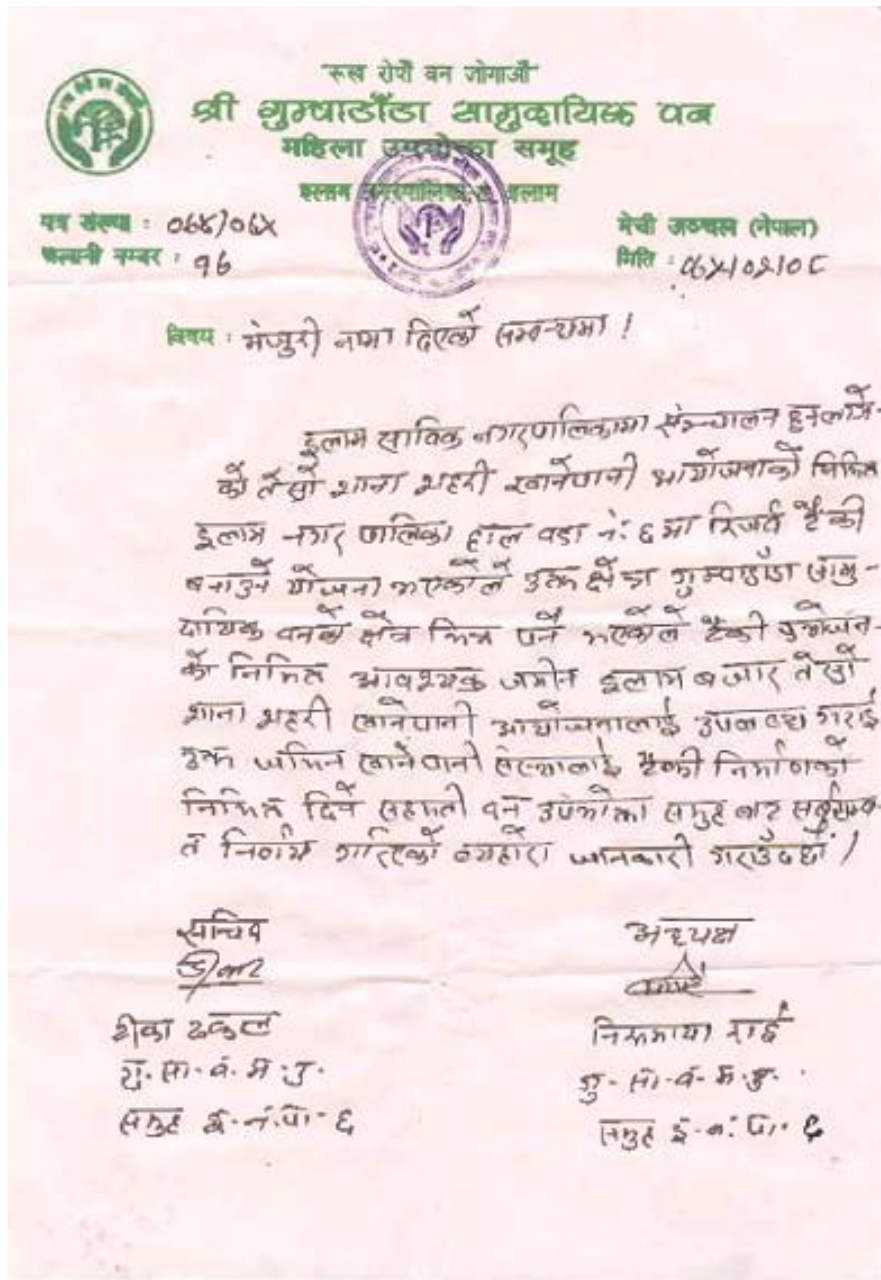 "रूख रोपौं वन जोगाऔं"
श्री गुम्बाडाँडा सामुदायिक वन
महिला उपभोक्ता समूह
इलाम नगरपालिका इलाम
पत्र संख्या : ०६४/०६५
मेची अञ्चल (नेपाल)
चलानी नम्बर : १६
मिति :
विषय : मंजुरी नामा दिएको सम्बन्धमा !
इलाम साविक नगरपालिकामा संञ्चालन हुन लागे-
को तेस्रो साना शहरी खानेपानी आयोजनाको निमित्त
इलाम नगर पालिका हाल वडा नं: ६ मा रिजर्व टैंकी
बनाउने योजना भएकोले उक्त क्षेत्र गुम्बाडाँडा सामु-
दायिक वनको क्षेत्र भित्र पर्ने भएकोले टैंकी
को निमित्त आवश्यक जमीन इलाम बजार तेस्रो
शाना शहरी खानेपानी आयोजनालाई उपलब्ध गराई
उक्त जमिन खानेपानी संस्थालाई टैंकी निर्माणको
निमित्त दिने सहमती वन उपभोक्ता समुह बाट सर्वसम्म-
त निर्णय गरिएको व्यहोरा जानकारी गराउँदछौं /
सचिव
अध्यक्ष
टीका ढकाल
निरुमाया राई
गु. सा. व. म. उ.
गु. सा. व. म. उ.
समुह ई. न. पा. ६
समुह ई. न. पा. ६